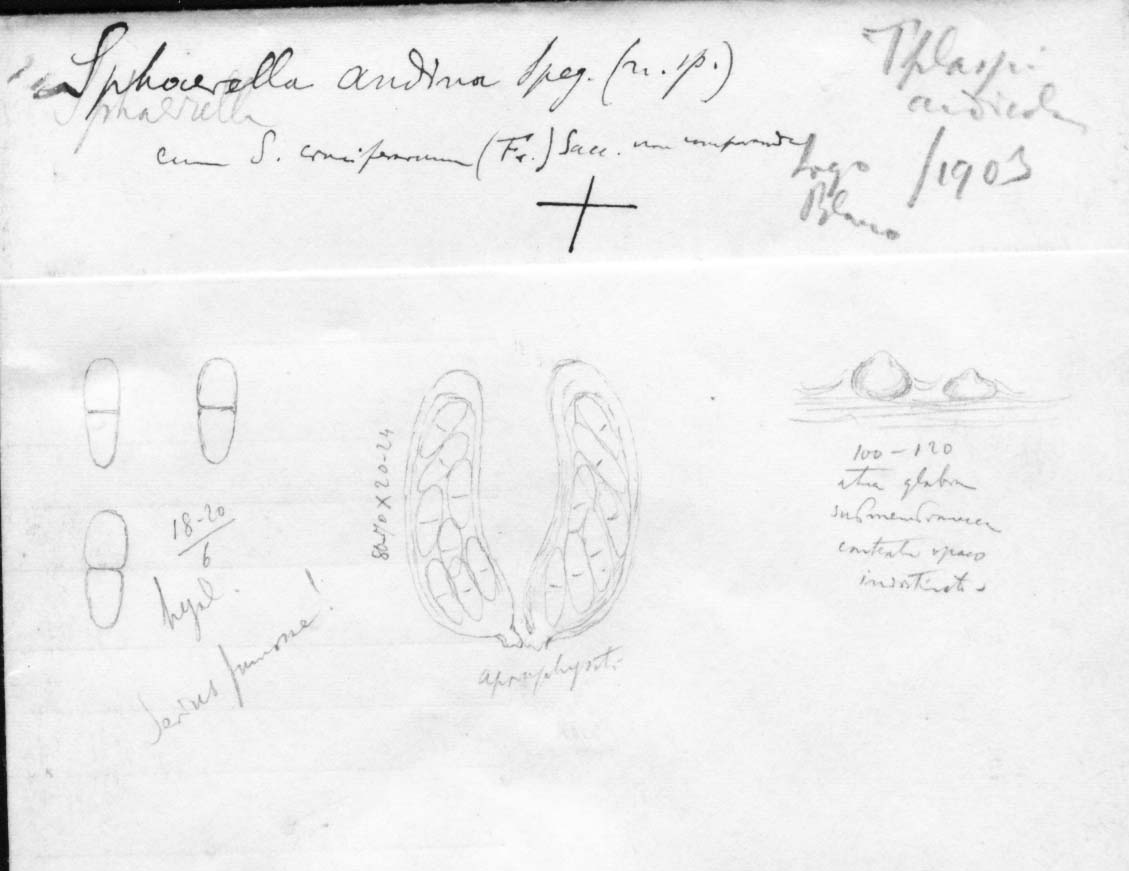 Sphaerella andina Speg. (n. sp.)
Sphaerella
cum S. cruciferarum (Fr.) Sacc. non comparanda
Thlaspi
andicola
Lago
Blanco
/1903
18-20
6
hyal.
Serius fumosae!
80-70 X 20-24
aparaphysati
100-120
atra glabra
submembranacea
contextu opaco
indistincto